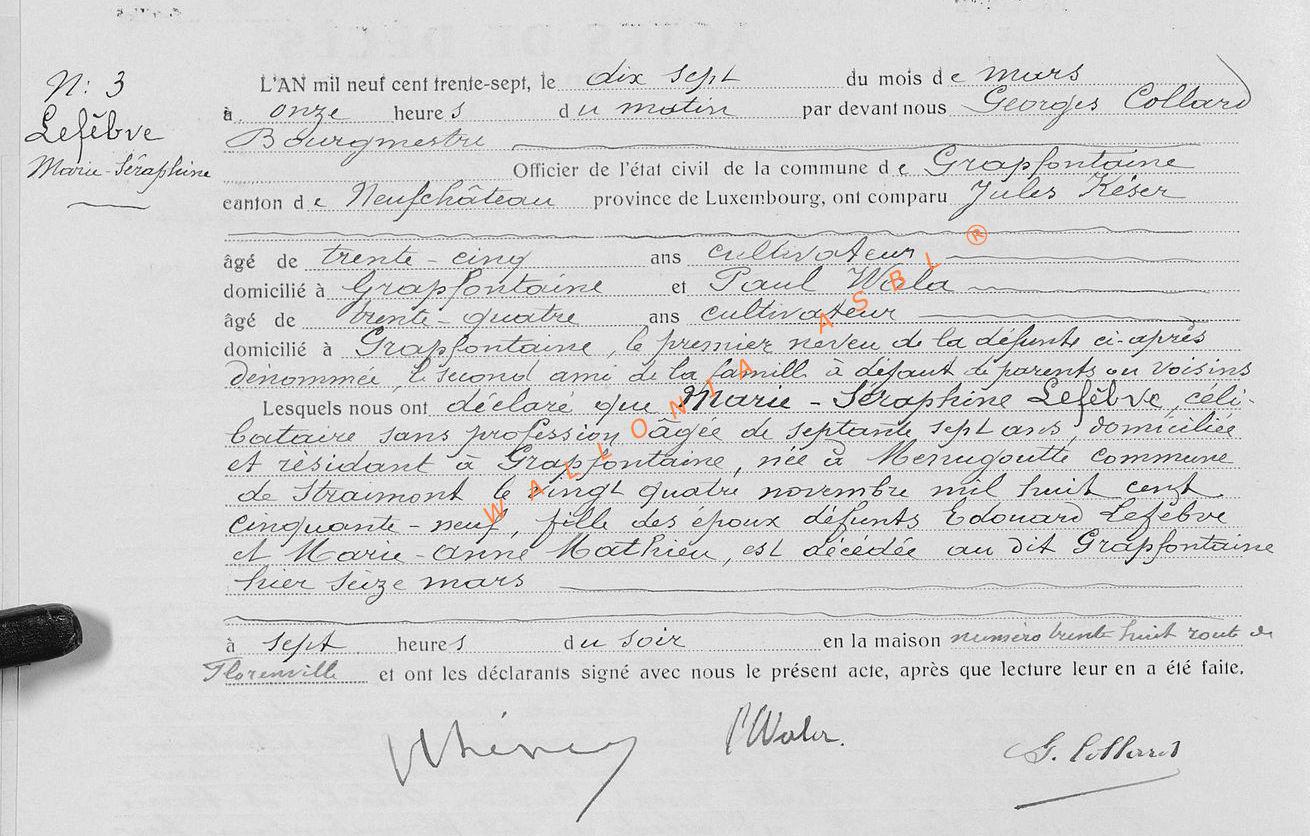 N: 3
Lefêbvre
Marie-Séraphine
L'AN mil neuf cent trente-sept, le dix sept du mois de mars
à onze heures du matin par devant nous Georges Collard
Bourgmestre
Officier de l'état civil de la commune de Grapfontaine
canton de Neufchâteau province de Luxembourg, ont comparu Jules
âgé de trente-cinq ans cultivateur
domicilié à Grapfontaine et Paul
âgé de trente-quatre ans cultivateur
domicilié à Grapfontaine, le premier neveu de la défunte ci-après
dénommée, le second ami de la famille à défaut de parents ou voisins
Lesquels nous ont déclaré que Marie-Séraphine Lefêbvre, céli-
bataire sans profession âgée de septante sept ans, domiciliée
et résidant à Grapfontaine, née à Menugoutte commune
de Straimont le vingt quatre novembre mil huit cent
cinquante-neuf, fille des époux défunts Edouard Lefêbvre
et Marie-Anne Mathieu, est décédée au dit Grapfontaine
hier seize mars
à sept heures du soir en la maison numéro trente huit route de
Florenville et ont les déclarants signé avec nous le présent acte, après que lecture leur en a été faite.
G. Collard
WALLONIA ASBL ®